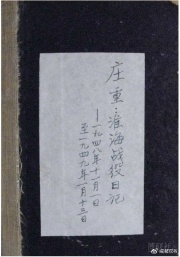 庄重·淮海战役日记
—一九四八年十一月一日
至一九四九年一月十三日